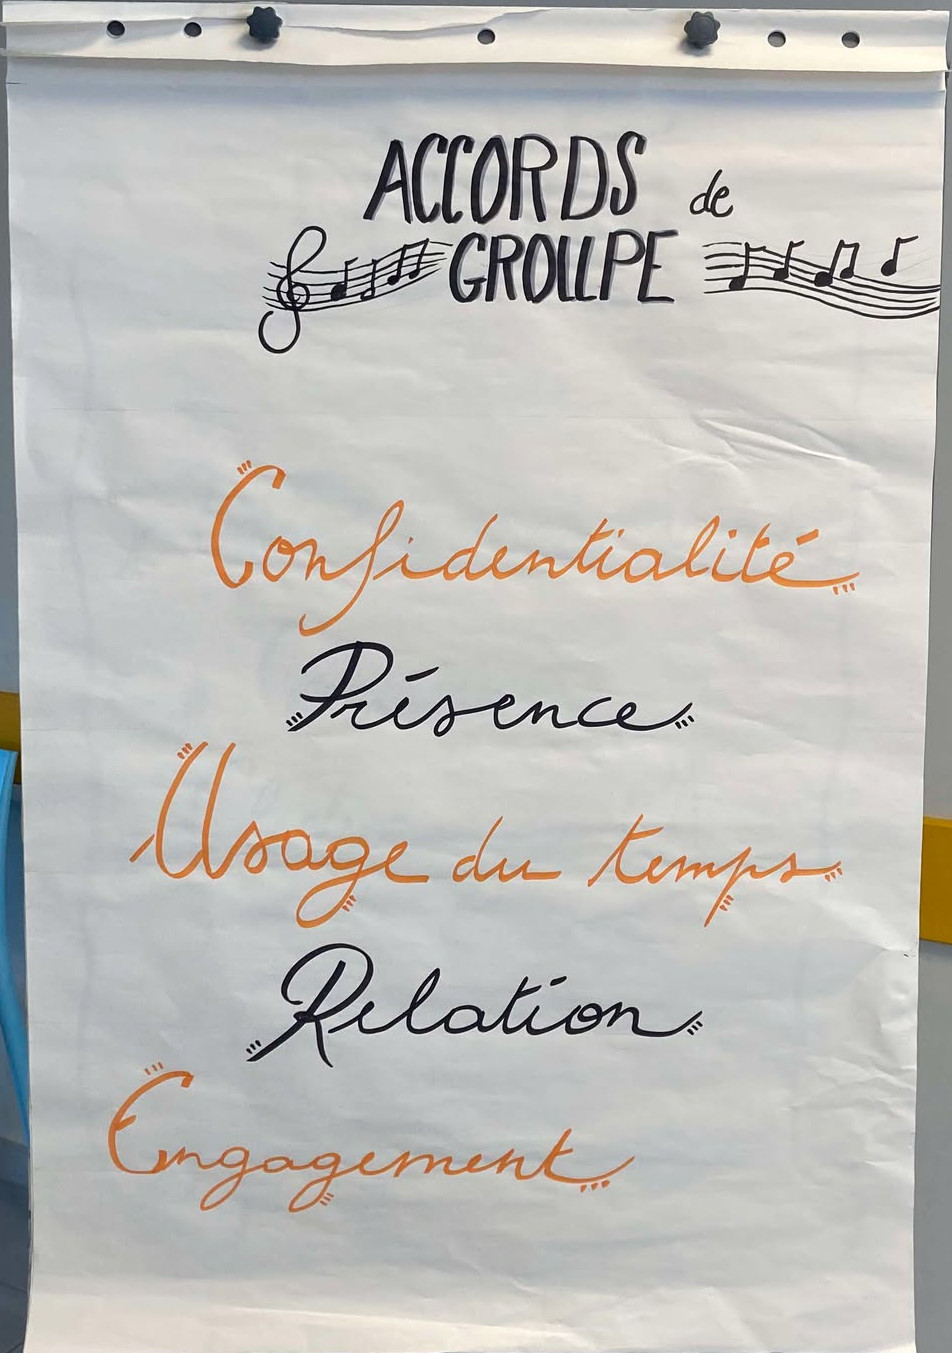 ACCORDS de
GROUPE
Confidentialité
Présence
Usage du temps
Relation
Engagement